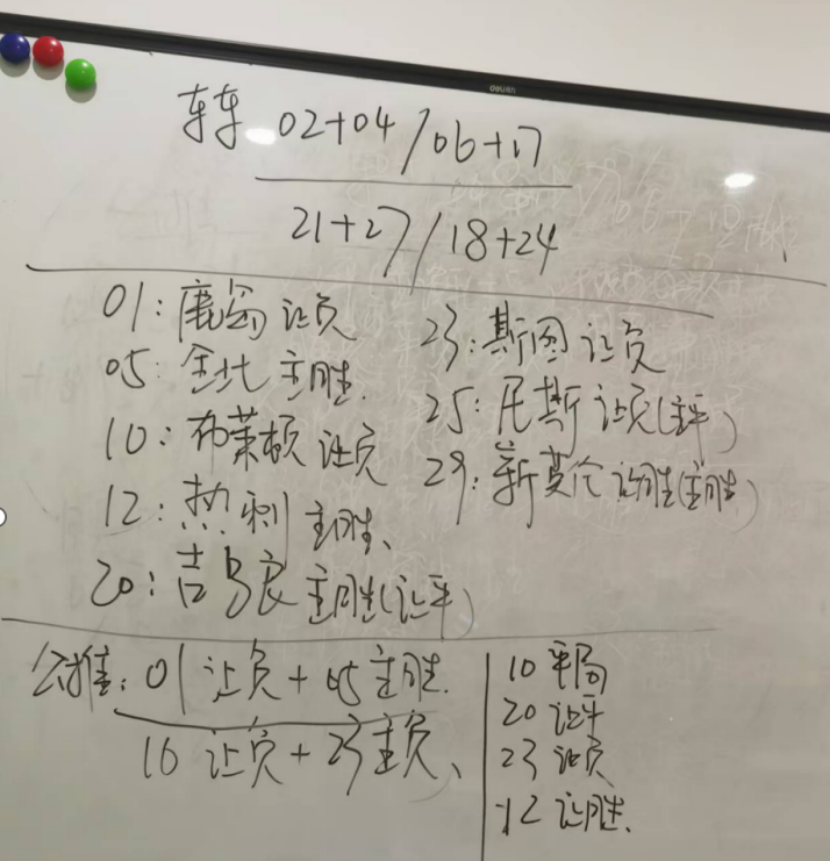 deli
02+04/06+17
21+27/18+24
01:鹿岛 让负
05:全北 主胜.
10:布莱顿 让负
12:热刺 主胜、
20:吉马良 主胜(让平)
23:斯图 让负
25:尼斯 让负(主平)
29:新英伦 让胜(主胜)
公推:01 让负+05主胜.
10 让负+23主负、
10 平局
20 让平
23 让负
12 让胜.